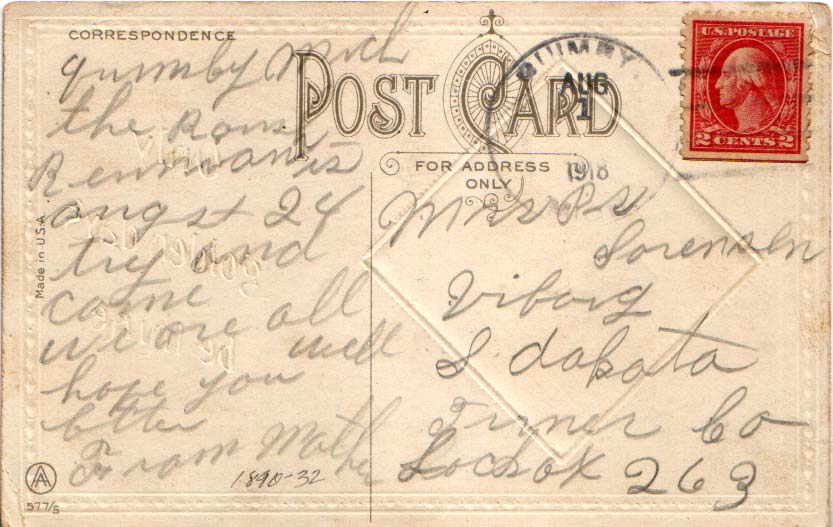 CORRESPONDENCE
POST CARD
FOR ADDRESS
ONLY
QUIMBY
AUG
1
1918
U.S. POSTAGE
2 CENTS 2
quimby Mich
the
Reunion is
augst 24
try and
come
we are all
well
hope you
btter
From Mother
Mrs P S
Sorensen
Viborg
S dakata
Turner Co
Lockbox 263
Made in U.S.A.
1890-32
577/5